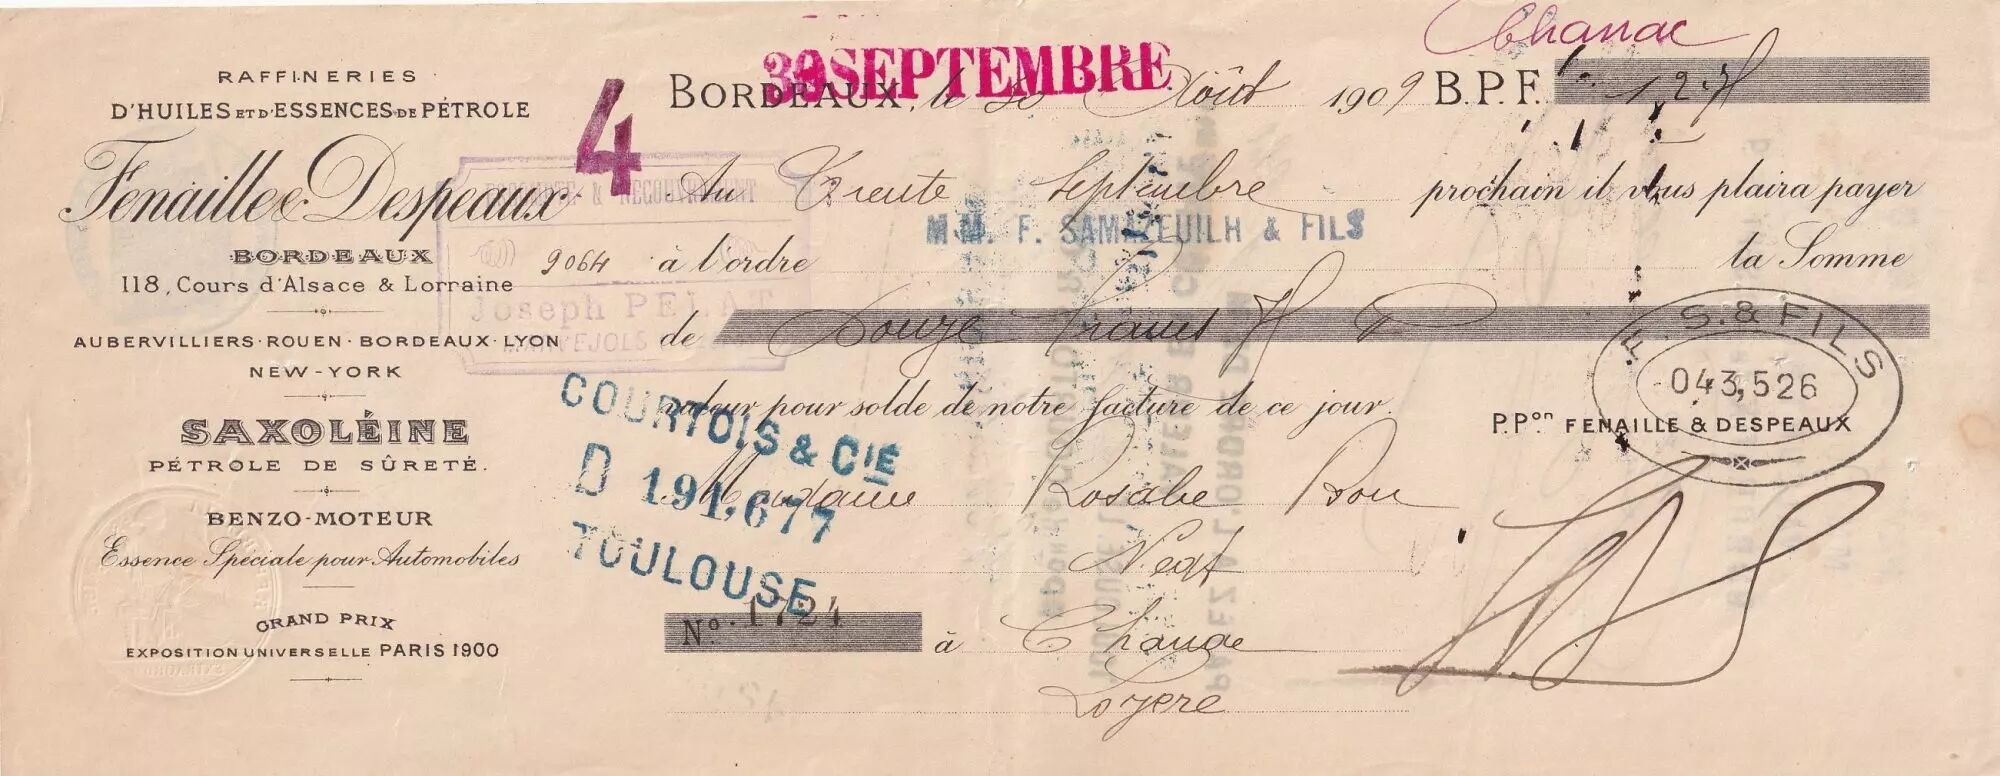 Chanac
RAFFINERIES
D'HUILES ET D'ESSENCES DE PÉTROLE
Fenaille & Despeaux
BORDEAUX
118, Cours d'Alsace & Lorraine
AUBERVILLIERS · ROUEN · BORDEAUX · LYON
NEW-YORK
SAXOLÉINE
PÉTROLE DE SÛRETÉ.
BENZO-MOTEUR
Essence Spéciale pour Automobiles
GRAND PRIX
EXPOSITION UNIVERSELLE PARIS 1900
4
30 SEPTEMBRE
BORDEAUX, le 30 Août 1909 B.P.F. 12
Au Trente Septembre prochain il vous plaira payer
MM. F. SAMAZEUILH & FILS
9064 à l'ordre la Somme
& RECOUVREMENT
Joseph PELAT
MARVEJOLS
de Douze francs
valeur pour solde de notre facture de ce jour.
F. S. & FILS
043,526
P.Pon FENAILLE & DESPEAUX
COURTOIS & CIE
D 191,677
TOULOUSE
Madame Rosalie Bon
Négt
No. 1724 à Chanac
Lozère